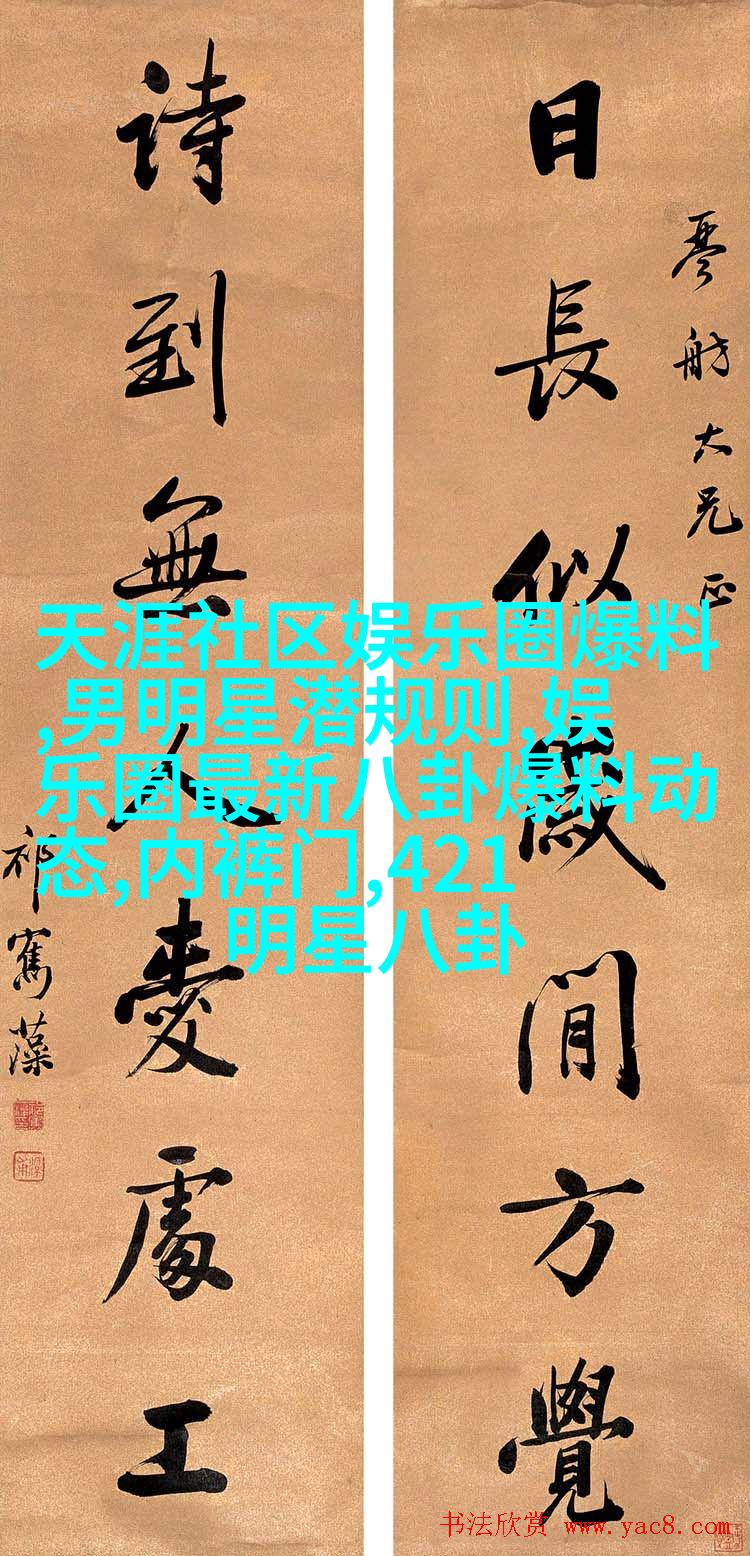 日長似歲閒方覺
琴舫大兄正
詩到無人愛處工
祁寯藻
天涯社区娱乐圈爆料
,男明星潜规则,娱
乐圈最新八卦爆料动
态,内裤门,421
明星八卦
书法欣赏 www.yac8.com